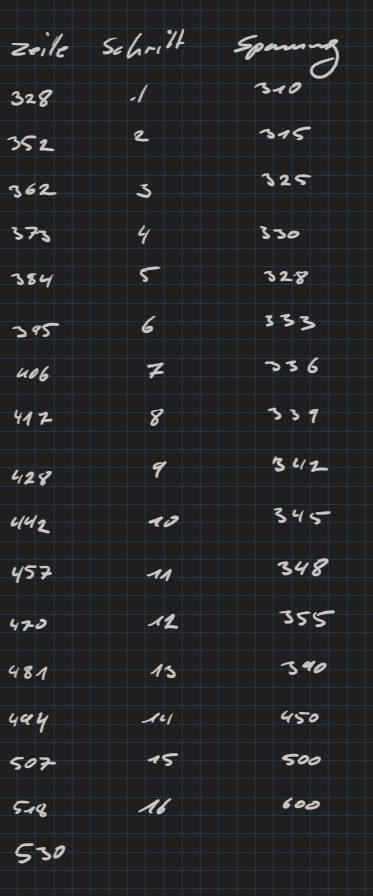 Zeile Schritt Spannung
328 1 310
352 2 315
362 3 325
373 4 330
384 5 328
395 6 333
406 7 336
417 8 339
428 9 342
442 10 345
457 11 348
470 12 355
481 13 390
494 14 450
507 15 500
518 16 600
530